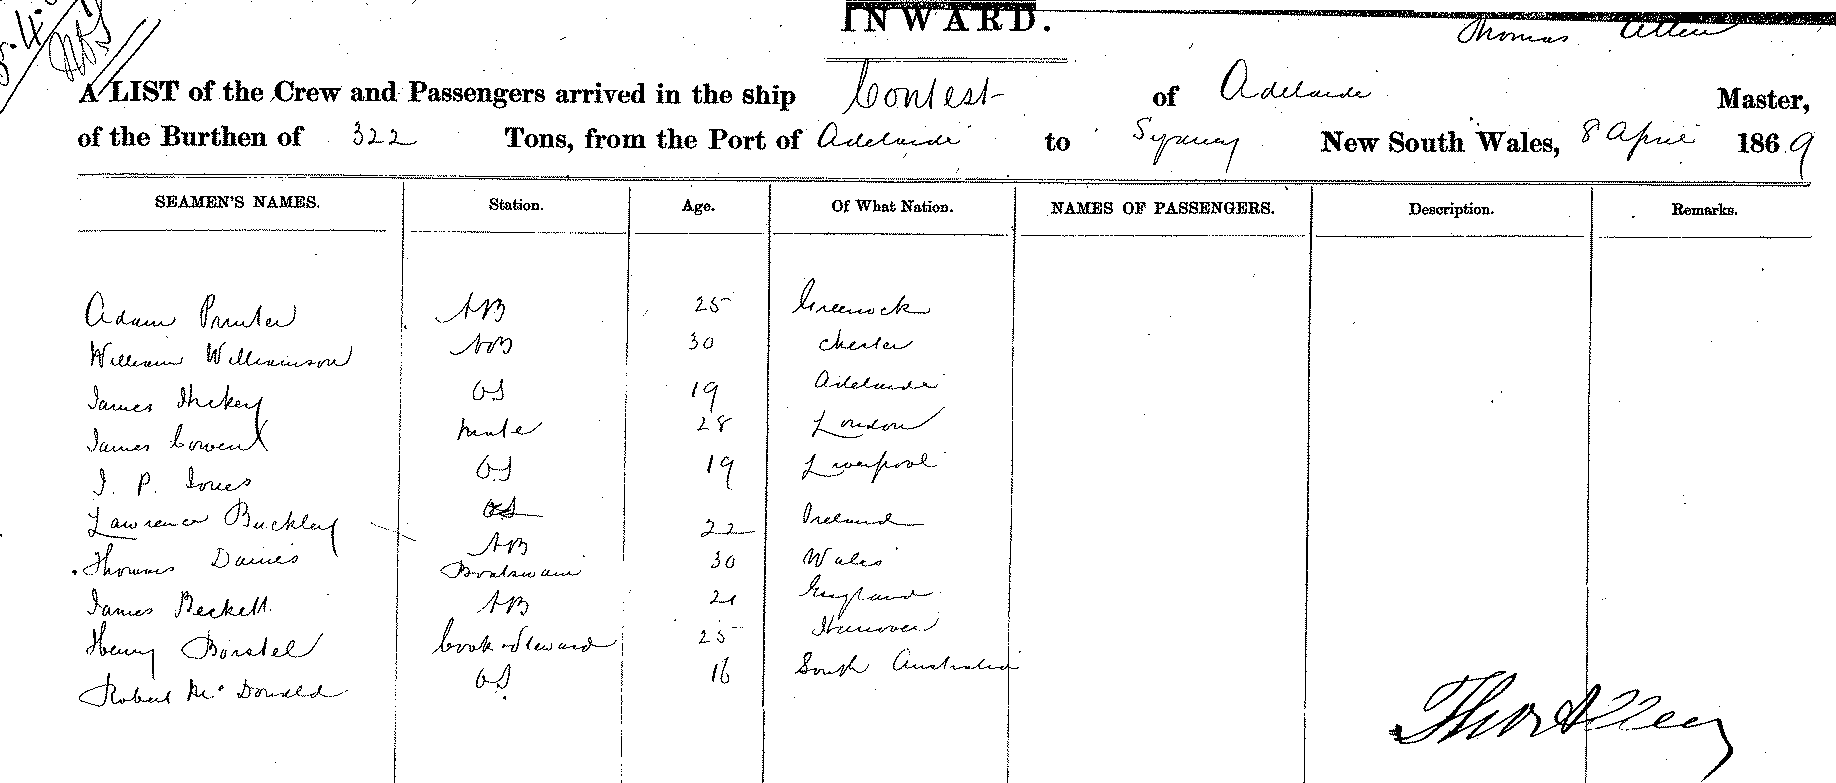 INWARD.
Thomas Allen
A LIST of the Crew and Passengers arrived in the ship Contest of Adelaide Master,
of the Burthen of 322 Tons, from the Port of Adelaide to Sydney New South Wales, 8 April 1869
SEAMEN'S NAMES. Station. Age. Of What Nation. NAMES OF PASSENGERS. Description. Remarks.
Adam AB 25 Greenock
William Williamson AB 30 Chester
James Hickey OS 19 Adelaide
James Cowen Mate 28 London
J. P. Jones OS 19 Liverpool
Lawrence Buckley OS AB 22 Ireland
Thomas Davies Boatswain 30 Wales
James Beckett AB 21 England
Henry Borstel Cook & Steward 25 Hanover
Robert McDonald OS 16 South Australia
Thos Allen